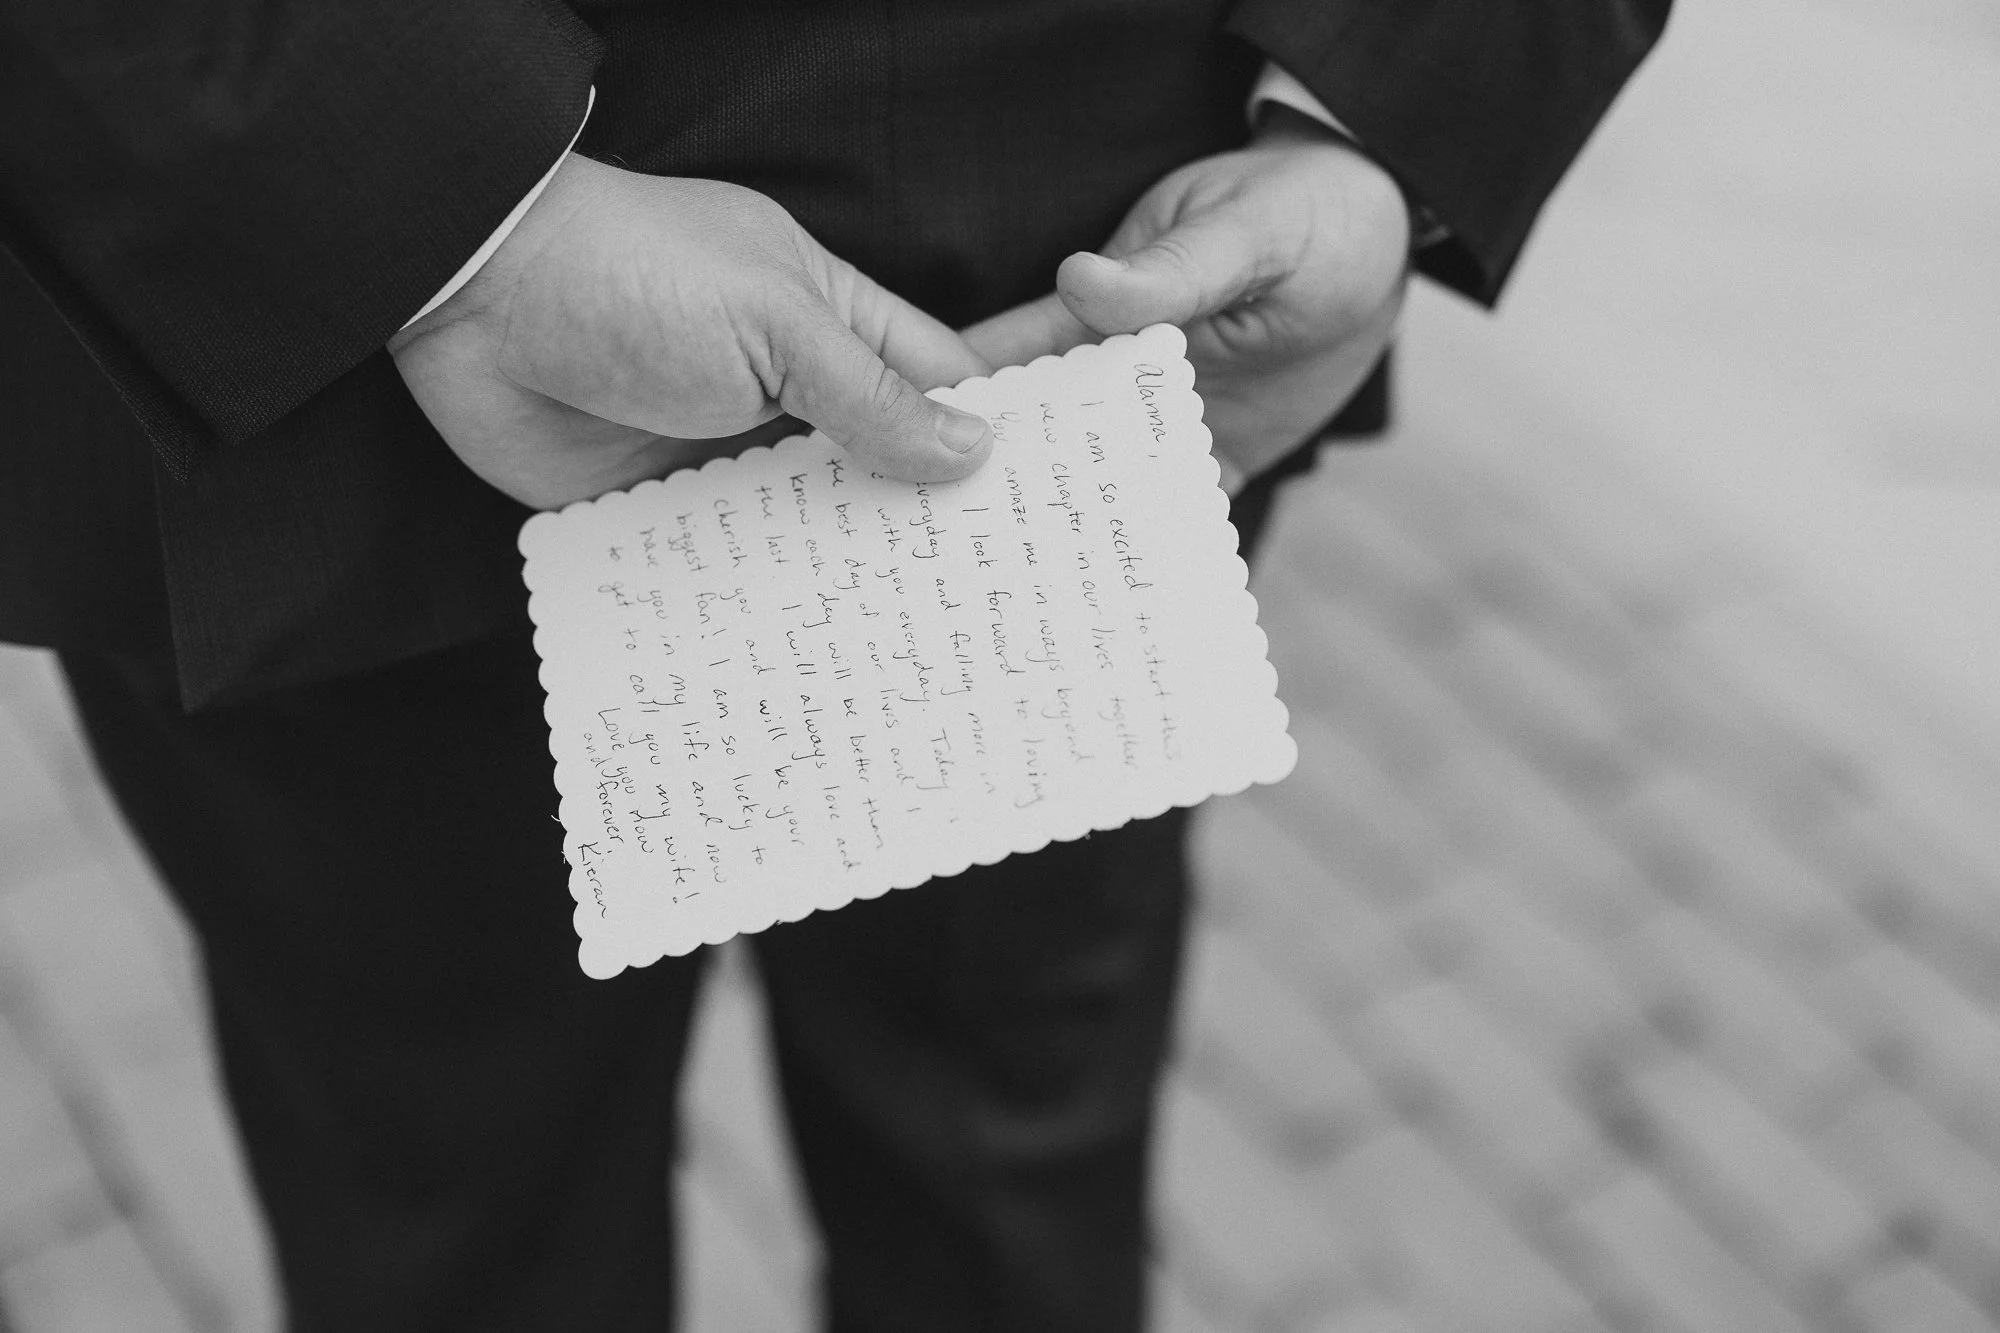 Alanna,
I am so excited to start this
new chapter in our lives together
You amaze me in ways beyond
I look forward to loving
everyday and falling more in
with you everyday. Today is
the best day of our lives and I
know each day will be better than
the last. I will always love and
cherish you and will be your
biggest fan! I am so lucky to
have you in my life and now
to get to call you my wife!
Love you now
and forever,
Kieran